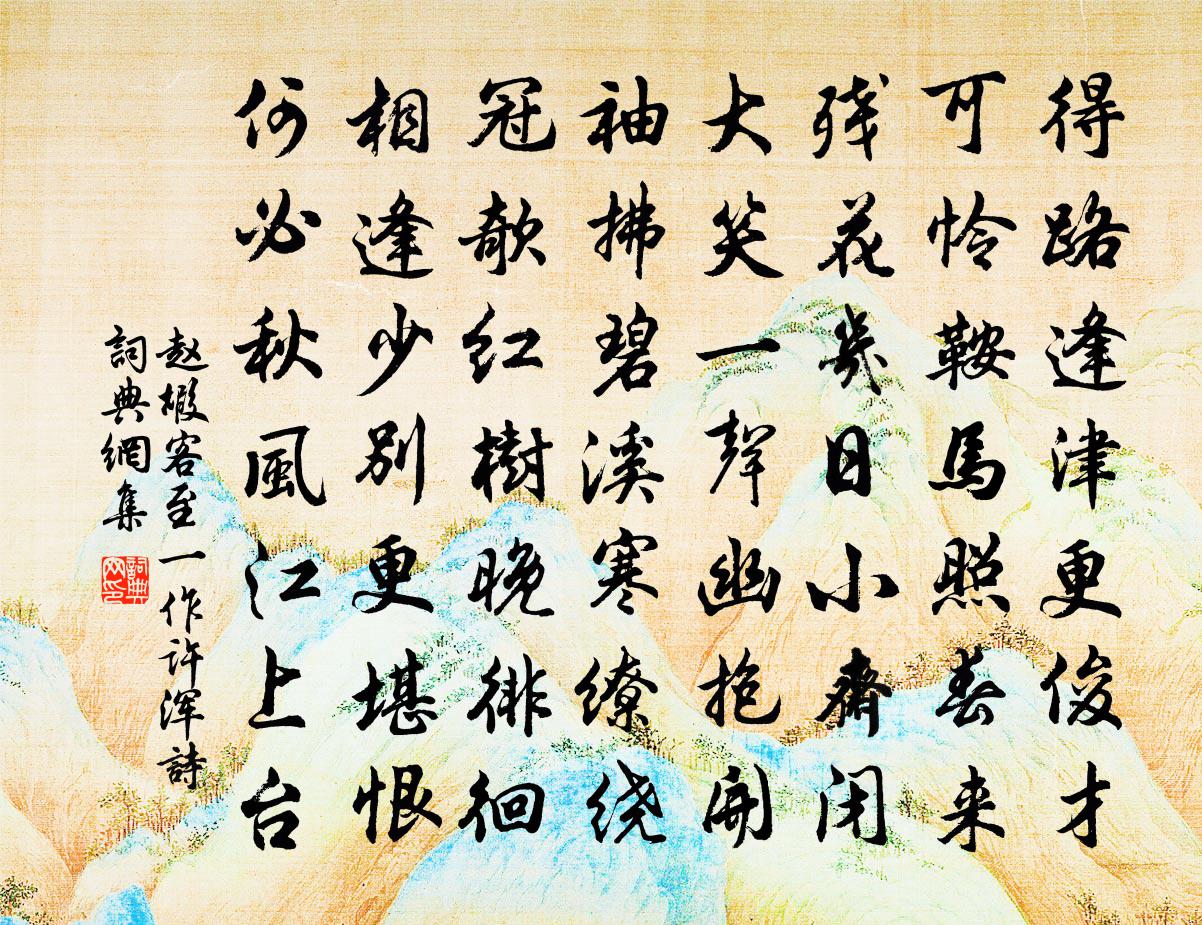 得路逢津更俊才
可怜鞍馬照春来
残花幾日小齋闭
大笑一聲幽抱開
袖拂碧溪寒缭绕
冠欹红樹晚徘徊
相逢少别更堪恨
何必秋風江上台
赵嘏客至一作许浑詩
詞典網集
詞典
网印